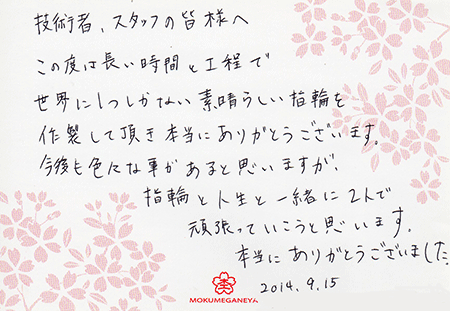 技術者、スタッフの皆様へ
この度は長い時間と工程で
世界に1つしかない素晴らしい指輪を
作製して頂き本当にありがとうございます。
今後も色々な事があると思いますが、
指輪と人生と一緒に2人で
頑張っていこうと思います。
本当にありがとうございました。
2014.9.15
MOKUMEGANEYA